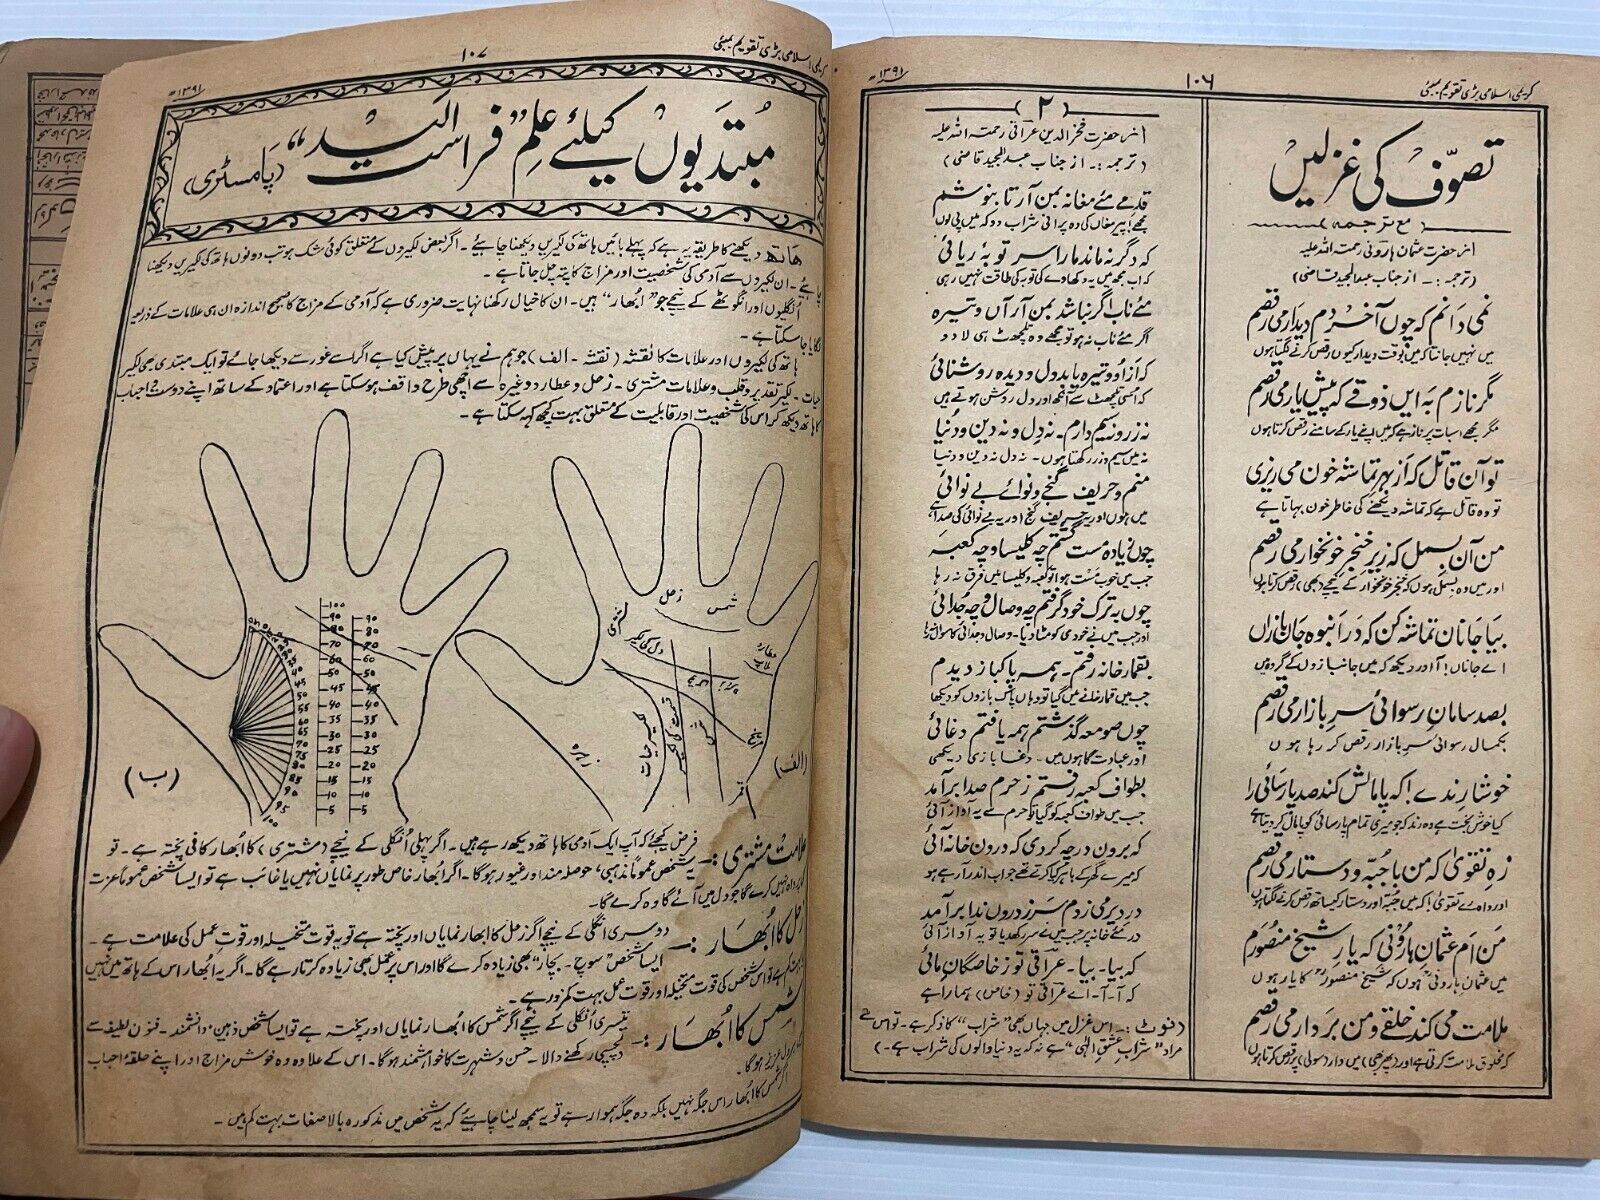 کریمی اسلامی بڑی تقویم بمبئی
۱۰۶
۱۳۹۱ھ
تصوّف کی غزلیں
(مع ترجمہ)
از حضرت عثمان ہارونی رحمتہ اللہ علیہ
(ترجمہ:۔ از جناب عبدالمجید قاضی)
نمی دانم کہ چوں آخر دم دیدار می رقصم
میں نہیں جانتا کہ میں بوقت دیدار کیوں رقص کرنے لگتا ہوں
مگر نازم بہ ایں ذوقے کہ پیش یار می رقصم
مگر مجھے اسبات پر ناز ہے کہ میں اپنے یار کے سامنے رقص کرتا ہوں
تو آن قاتل کہ از بہر تماشہ خون می ریزی
تو وہ قاتل ہے کہ تماشہ دیکھنے کی خاطر خون بہاتا ہے
من آن بسمل کہ زیر خنجر خونخوار می رقصم
اور میں وہ بسمل ہوں کہ خنجر خونخوار کے نیچے (بھی) رقص کرتا ہوں
بیا جانان تماشہ کن کہ در انبوہ جان بازاں
اے جاناں! آ اور دیکھ کہ میں جانبازوں کے گروہ میں
بصد سامانِ رسوائی سرِ بازار می رقصم
بکمال رسوائی سرِ بازار رقص کر رہا ہوں
خوشا رندے! کہ پامالش کند صد پارسائی را
کیا خوش بخت ہے وہ رند کہ جو میری تمام پارسائی کو پامال کر دیتا ہے
زہِ تقویٰ کہ من با جبّہ و دستار می رقصم
اور واہ رے تقویٰ! کہ میں جبّہ اور دستار کیساتھ رقص کرنے لگتا ہوں
من ام عثمان ہارونی کہ یارِ شیخ منصورم
میں عثمان ہارونی ہوں کہ شیخ منصور کا یار ہوں
ملامت می کند خلقے و من بر دار می رقصم
کہ مخلوق ملامت کرتی ہے اور (پھر بھی) میں دار (سولی) پر رقص کرتا ہوں
(۲)
از حضرت فخر الدین عراقی رحمتہ اللہ علیہ
(ترجمہ:۔ از جناب عبدالمجید قاضی)
قدمے مئے مغانہ بمن آر تا بنوشم
مجھے! پیر مغاں کی وہ پرانی شراب دو کہ میں پی لوں
کہ دگر نہ ماند مارا سر توبہ ریائی
کہ اب مجھ میں یہ دکھاوے کی توبہ کی طاقت نہیں رہی
مئے ناب اگر نباشد بمن آر آں و تیرہ
اگر مئے ناب نہ ہو تو مجھے وہ تلچھٹ ہی لا دو
کہ از او و تیرہ یابد دل و دیدہ روشنائی
کہ اسی تلچھٹ سے آنکھ اور دل روشن ہوتے ہیں
نہ زر و نہ سیم دارم۔ نہ دل و نہ دین و دنیا
نہ میں سیم و زر رکھتا ہوں۔ نہ دل نہ دین و دنیا
منم و حریف گنجے و نوائے بے نوائی
میں ہوں اور یہ حریف گنج اور یہ بے نوائی کی صدا ہے
چوں زیادہ مست گشتم چہ کلیسا و چہ کعبہ
جب میں خوب مست ہوا تو کعبہ و کلیسا میں فرق نہ رہا
چوں بہ ترک خود گرفتم چہ وصال و چہ جدائی
اور جب میں نے خودی کو مٹا دیا۔ وصال و جدائی کا سوال نہ رہا
بقمار خانہ رفتم۔ ہمہ پاکباز دیدم
جب میں قمار خانے میں گیا تو وہاں پاکبازوں کو دیکھا
چوں صومعہ گذشتم ہمہ یافتم دغائی
اور عبادت گاہوں میں۔ دغا بازی دیکھی
بطواف کعبہ رفتم ز حرم صدا برآمد
جب میں طواف کعبہ کو گیا تو حرم سے یہ آواز آئی
کہ برون در چہ کردی کہ درون خانہ آئی
کہ میرے گھر کے باہر کیا کرتے تھے جو اب اندر آ رہے ہو
در دیر می زدم سر ز درون ندا برآمد
در مئے خانہ پر جب میں نے سر رکھدیا تو یہ آواز آئی
کہ بیا۔ بیا۔ عراقی تو ز خاصگان مائی
کہ آ۔ آ۔ اے عراقی تو (خاص) ہمارا ہے
(نوٹ:۔ اس غزل میں جہاں بھی "شراب" کا ذکر ہے۔ تو اس سے
مراد "شراب عشقِ الٰہی" ہے نہ کہ یہ دنیا والوں کی شراب ہے۔)
کریمی اسلامی بڑی تقویم بمبئی
۱۰۷
۱۳۹۱ھ
مُبتدیوں کیلئے علم "فراست الید" (پامسٹری)
ہاتھ دیکھنے کا طریقہ یہ ہے کہ پہلے بائیں ہاتھ کی لکیریں دیکھنا چاہیئے۔ اگر بعض لکیروں کے متعلق کوئی شک ہو تب دونوں ہاتھ کی لکیریں دیکھنا
چاہئے۔ ان لکیروں سے آدمی کی شخصیت اور مزاج کا پتہ چل جاتا ہے۔
انگلیوں اور انگوٹھے کے نیچے جو "ابھار" ہیں۔ ان کا خیال رکھنا نہایت ضروری ہے کہ آدمی کے مزاج کا صحیح اندازہ ان ہی علامات کے ذریعہ
لگایا جا سکتا ہے۔
ہاتھ کی لکیروں اور علامات کا نقشہ (نقشہ۔ الف) جو ہم نے یہاں پر پیش کیا ہے اگر اسے غور سے دیکھا جائے تو ایک مبتدی بھی لکیر
حیات۔ لکیر تقدیر و قلب و علامات مشتری۔ زحل و عطارد وغیرہ سے اچھی طرح واقف ہو سکتا ہے اور اعتماد کے ساتھ اپنے دوست احباب
کا ہاتھ دیکھ کر اس کی شخصیت اور قابلیت کے متعلق بہت کچھ کہہ سکتا ہے۔
زحل
شمس
مشتری
عطارد
دل کی لکیر
مریخ
لکیر حیات
قسمت کی لکیر
زہرہ
قمر
(الف)
100
90
80
70
60
50
45
40
35
30
25
20
15
10
5
90
80
70
60
50
45
40
35
30
25
20
15
10
5
40
45
50
55
60
65
70
75
80
85
90
95
100
(ب)
علامت مشتری:۔ فرض کیجئے کہ آپ ایک آدمی کا ہاتھ دیکھ رہے ہیں۔ اگر پہلی انگلی کے نیچے (مشتری) کا ابھار کافی پختہ ہے۔ تو
یہ شخص عموماً مذہبی، حوصلہ مند اور غیور ہوگا۔ اگر ابھار خاص طور پر نمایاں نہیں یا غائب ہے تو ایسا شخص عموماً عزت
کی پرواہ نہیں کرے گا جو دل میں آئے گا وہ کرے گا۔
زحل کا ابھار:۔ دوسری انگلی کے نیچے اگر زحل کا ابھار نمایاں اور پختہ ہے تو یہ قوت متخیلہ اور قوتِ عمل کی علامت ہے۔
ایسا شخص سوچ۔ بچار بھی زیادہ کرے گا اور اس پر عمل بھی زیادہ کرتا رہے گا۔ اگر یہ ابھار اس کے ہاتھ میں نہیں
ہے تو اس شخص کی قوت متخیلہ اور قوت عمل بہت کمزور ہے۔
شمس کا ابھار:۔ تیسری انگلی کے نیچے اگر شمس کا ابھار نمایاں اور پختہ ہے تو ایسا شخص ذہین۔ دانشمند۔ فنون لطیفہ سے
دلچسپی رکھنے والا۔ حسن و شہرت کا خواہشمند ہوگا۔ اس کے علاوہ وہ خوش مزاج اور اپنے حلقۂ احباب
میں ہردلعزیز ہوگا۔
اگر شمس کا ابھار اس جگہ نہیں بلکہ وہ جگہ ہموار ہے تو یہ سمجھ لینا چاہیئے کہ یہ شخص میں مذکورہ بالا صفات بہت کم ہیں۔